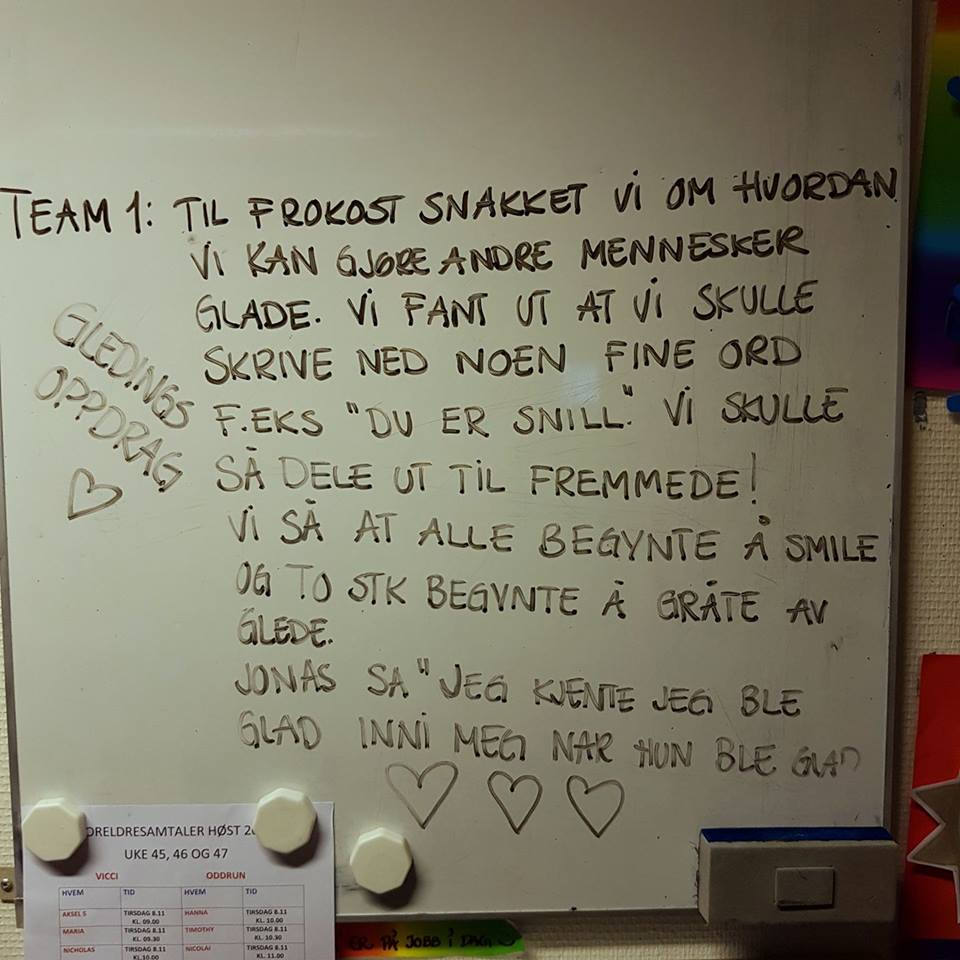 TEAM 1: TIL FROKOST SNAKKET VI OM HVORDAN
VI KAN GJØRE ANDRE MENNESKER
GLADE. VI FANT UT AT VI SKULLE
SKRIVE NED NOEN FINE ORD
F.EKS "DU ER SNILL." VI SKULLE
SÅ DELE UT TIL FREMMEDE!
VI SÅ AT ALLE BEGYNTE Å SMILE
OG TO STK BEGYNTE Å GRÅTE AV
GLEDE.
JONAS SA "JEG KJENTE JEG BLE
GLAD INNI MEG NÅR HUN BLE GLAD
GLEDINGS
OPPDRAG
ORELDRESAMTALER HØST
UKE 45, 46 OG 47
VICCI ODDRUN
HVEM TID HVEM TID
AKSEL S TIRSDAG 8.11 KL. 09.00 HANNA TIRSDAG 8.11 KL. 10.00
MARIA TIRSDAG 8.11 KL. 09.30 TIMOTHY TIRSDAG 8.11 KL. 10.30
NICHOLAS TIRSDAG 8.11 KL.10.00 NICOLAI TIRSDAG 8.11 KL. 11.00
ER PÅ JOBB I DAG